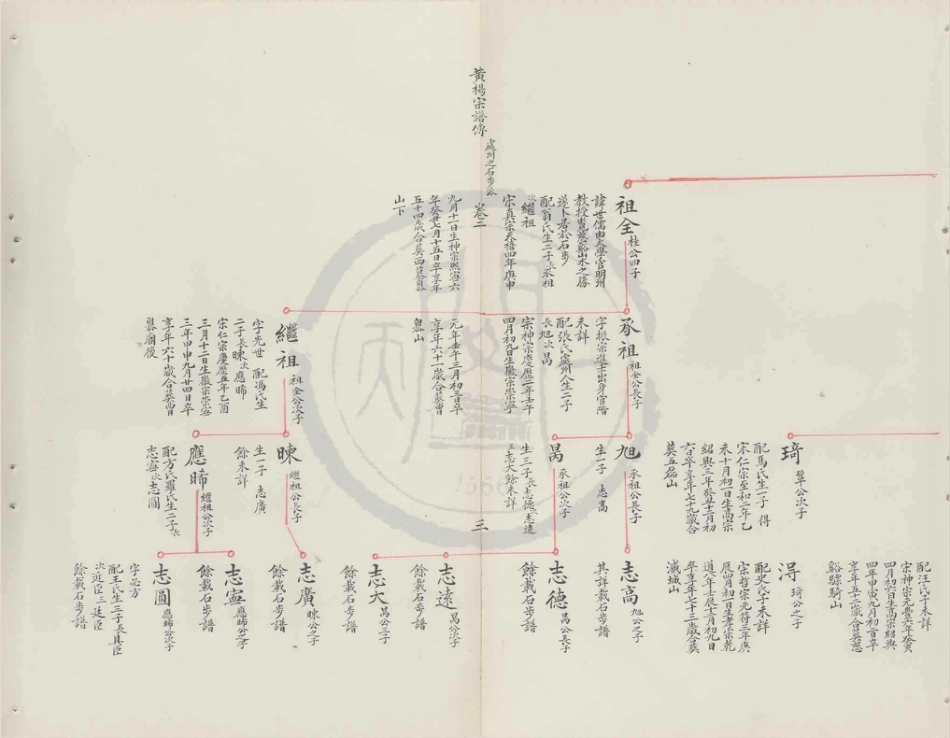 黃楊宗譜傳
處州之石步派
卷三
三
祖全
桂公四子
諱世儒由太學官明州
教授覽慈谿山水之勝
遂卜居於石步
配翁氏生二子長承祖
次繼祖
宗真宗天禧四年庚申
九月十一日生神宗熙寧六
年癸丑七月十五日卒享年
五十四歲合葬西
山下
承祖
祖全公長子
字振宗進士出身官階
未詳
配張氏處州人生二子
長旭次昺
宗神宗慶歷二年壬午
四月初九日生徽宗崇寧
元年壬午三月初三日卒
享年六十一歲合葬曹
山
繼祖
祖全公次子
字光世 配馮氏生
二子長暕次應晞
宗仁宗慶歷五年乙酉
三月十二日生徽宗崇寧
三年甲申九月廿四日卒
享年六十歲合葬曹
廟後
琦
公次子
配馬氏生一子 得
宋仁宗至和二年乙
未十月初一日生高宗
紹興三年癸丑十二月初
六日卒享年七十九歲合
葬五磊山
旭
承祖公長子
生一子 志高
昺
承祖公次子
生三子長志德次志遠
三志大餘未詳
暕
繼祖公長子
生一子 志廣
餘未詳
應晞
繼祖公次子
配方氏羅氏生二子長
志寧次志圓
配汪氏子未詳
宋神宗元豐六年癸亥
四月初六日生高宗紹興
四年甲寅九月初二日卒
享年五十二歲合葬慈
谿驃騎山
淂
琦公之子
配史氏子未詳
宗哲宗元符三年庚
辰四月初一日生孝宗乾
道八年壬辰十月初九日
卒享年七十三歲合葬
城山
志高
旭公之子
其詳載石步譜
志德
昺公長子
餘載石步譜
志遠
昺公次子
餘載石步譜
志大
昺公三子
餘載石步譜
志廣
暕公之子
餘載石步譜
志寧
應晞公長子
餘載石步譜
志圓
應晞公次子
字必方
配王氏生三子長具臣
次近臣三廷臣
餘載石步譜